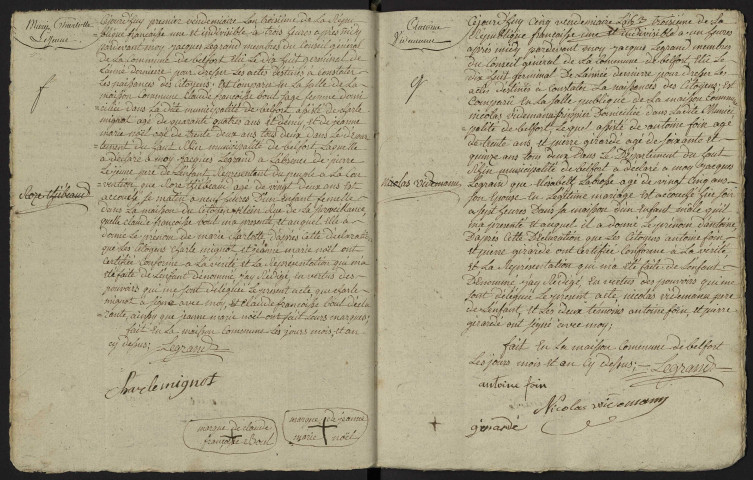 Marie Charlotte
Lejeune
f
Rose thiébeaud
Cejourd'huy premier vendemiaire L'an troisieme de la Répu
blique françoise une et indivisible a trois heures après midy
pardevant moy Jacques Legrand membre du Conseil général
de la Commune de belfort Elu le dix huit germinal de
L'année derniere pour dresser Les actes destinés a constater
Les naissances des Citoyens; Est comparu en La Salle de La
maison Commune Claude françoise bout sage femme domi
ciliée dans La dite municipalité de belfort assistée de Charle
mignot agé de quarante quatre ans et demy, et de jeanne
marie noël agé de trente deux ans tous deux dans Le Dépar
tement du haut Rhin municipalité de belfort, Laquelle
a déclaré a moy Jacques Legrand
Lejeune pere de L'enfant Représentant du peuple a La Con
vention que Rose thiébeau agé de vingt deux ans Est
accouché Le matin a neuf heures D'un Enfant femelle
dans La maison du Citoyen
ditte claude françoise bout ma presenté, et auquel Elle a
donné Le prenom de marie Charlotte, D'après cette déclaration
que Les Citoyens Charle mignot et jeanne marie noël ont
certifiée Conforme a La verité et La Représentation qui ma
été faite de L'enfant dénommé, j'ay Rédigé, en vertus des
pouvoirs qui me sont délégués Le present acte que Charle
mignot a signé avec moy, et Claude françoise bout décla
rante, ainsy que jeanne marie noël ont fait Leurs marques;
fait En La maison Commune Les jours, mois, et an
cy dessus; Legrand
Charlemignot
marque de claude
françoise Bout
marque de jeanne
marie noël
Nicolas videmann
Cejourd'huy Cinq vendemiaire L'an troisieme de La
République françoise une et indivisible a neuf heures
après midy pardevant moy Jacques Legrand membre
du Conseil général de La Commune de belfort Elu Le
dix huit germinal de L'année derniere pour dresser Les
actes destinés a Constater La naissances des Citoyens; Est
Comparu En La Salle publique de La maison Commune
nicolas videmann Domicilié dans Ladite Munici
palité de belfort, Lequel assisté de antoine foin agé
de trente ans et pierre girardé agé de soixante et
quinze ans tous deux Dans Le Département du haut
Rhin municipalité de belfort a déclaré a moy Jacques
Legrand que Elisabeth agé de vingt Cinq ans
son Epouse En Legitime mariage est accouché hier soir
a sept heures Dans sa maison D'un Enfant mâle qu'il
ma presenté et auquel il a donné Le prenom d'antoine
D'après Cette Déclaration que Les Citoyens antoine foin
et pierre girardé ont Certifiée Conforme a La verité
et La Représentation qui ma été faite de L'enfant
Denommé j'ay Rédigé, en vertus des pouvoirs qui me
sont délégué Le present acte, nicolas videmann pere
de L'enfant, et Les deux temoins antoine foin, et pierre
girardé ont signé avec moy;
fait En La maison Commune de belfort
Les jours mois et an cy dessus; Legrand
antoine foin
Nicolas videmann
girardé